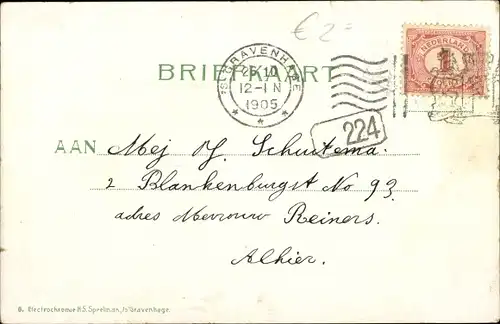 € 2=
NEDERLAND
BRIEFKAART
'S GRAVENHAGE
12-1 N
1905
* * *
224
AAN Mej H. Schuitema.
2 Blankenburgst No 93
adres Mevrouw Reiners.
Alhier.
6. Electrochromie H.S. Speelman, 's Gravenhage.